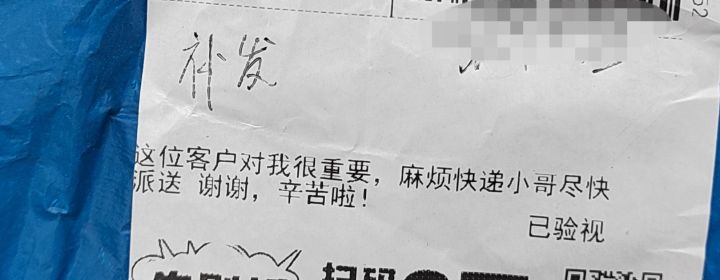 52
补发
这位客户对我很重要，麻烦快递小哥尽快
派送 谢谢，辛苦啦！
已验视
扫码